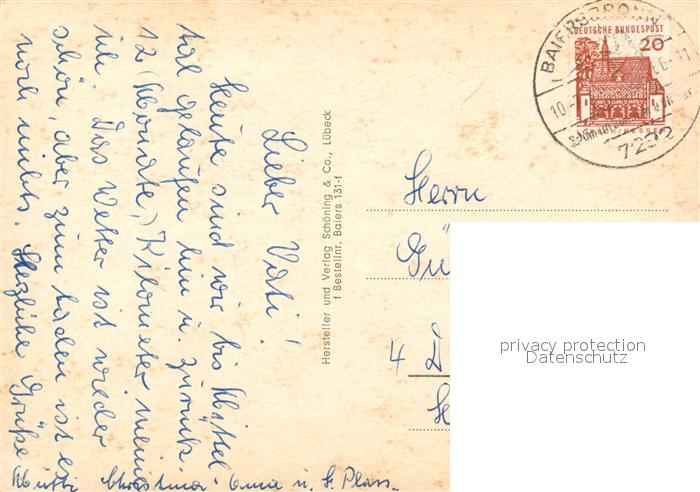 Lieber Vati!
Heute sind wir bis Mittel
tal gelaufen hin u. zurück.
12 (Monate,) Kilometer meine
ich. Das Wetter ist wieder
schön, aber zum baden ist es
noch nichts. Herzliche Grüße
Mutti Christina Oma u. H. Plass.
Hersteller und Verlag Schöning & Co., Lübeck
f Bestellnr. Baiers 131-f
BAIERSBRONN
DEUTSCHE BUNDESPOST
20
7292
Herrn
Gü
4 D
privacy protection
Datenschutz